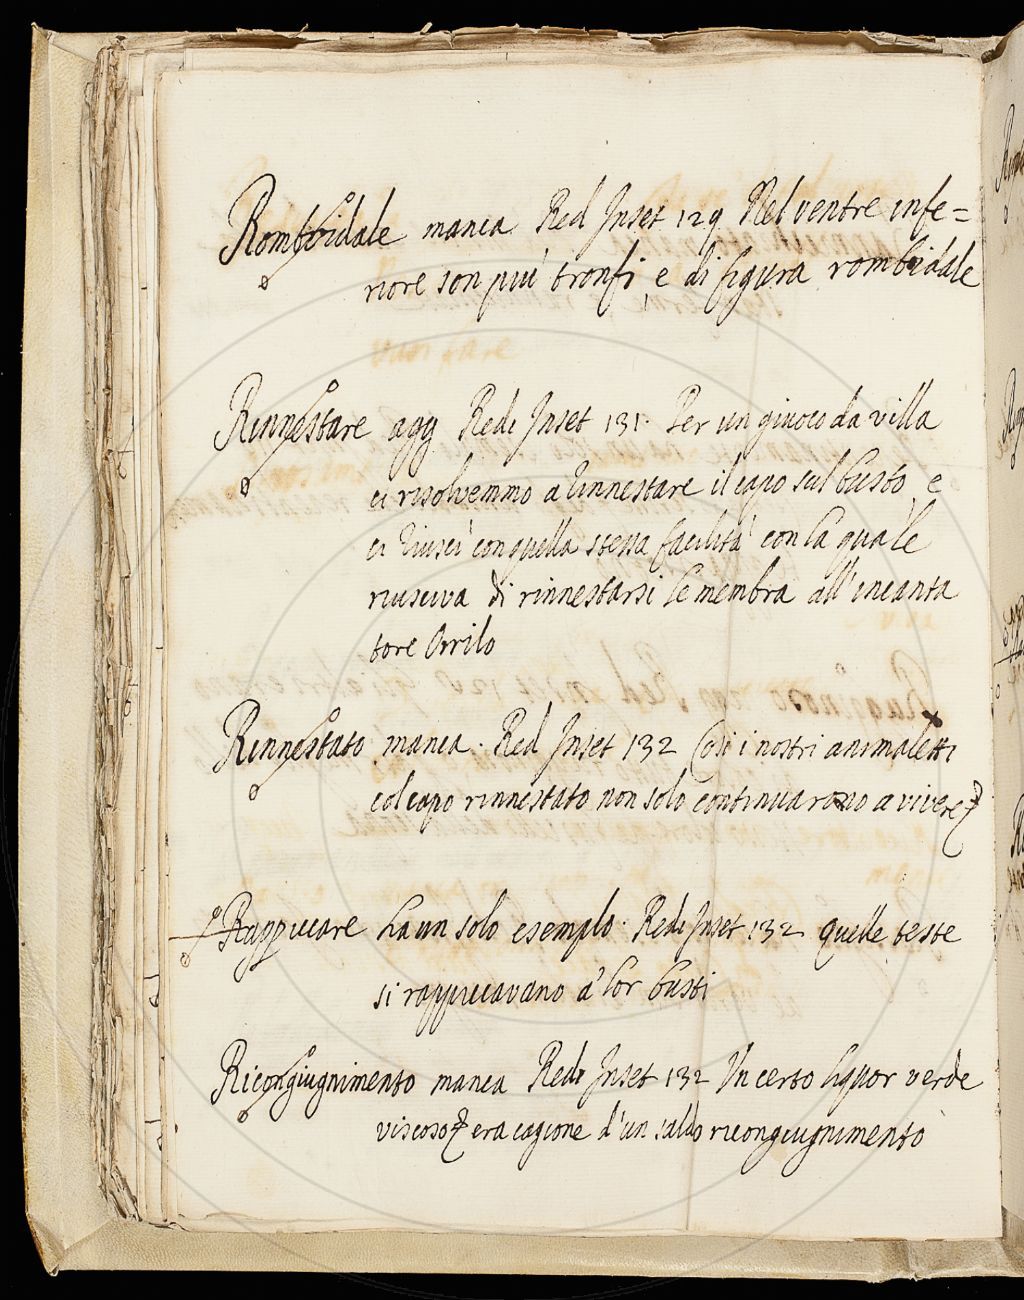 Romboidale manca Red Inset 129 Nel ventre infe=
riore son piu' tronfi, e di figura romboidale
Rinnestare agg Redi Inset 131. Per un giuoco da villa
ci risolvemmo a rinnestare il capo sul busto, e
ci riuscì con quella stessa facilità con la quale
riusciva di rinnestarsi le membra all'incanta
tore Orrilo
Rinnestato manca. Red Inset 132 Così i nostri animaletti
col capo rinnestato non solo continuarono a vivere
Rappiccare ha un solo esemplo. Redi Inset 132 quelle teste
si rappiccavano a' lor busti
Ricongiugnimento manca Redi Inset 132 Un certo liquor verde
viscoso era cagione d'un saldo ricongiugnimento